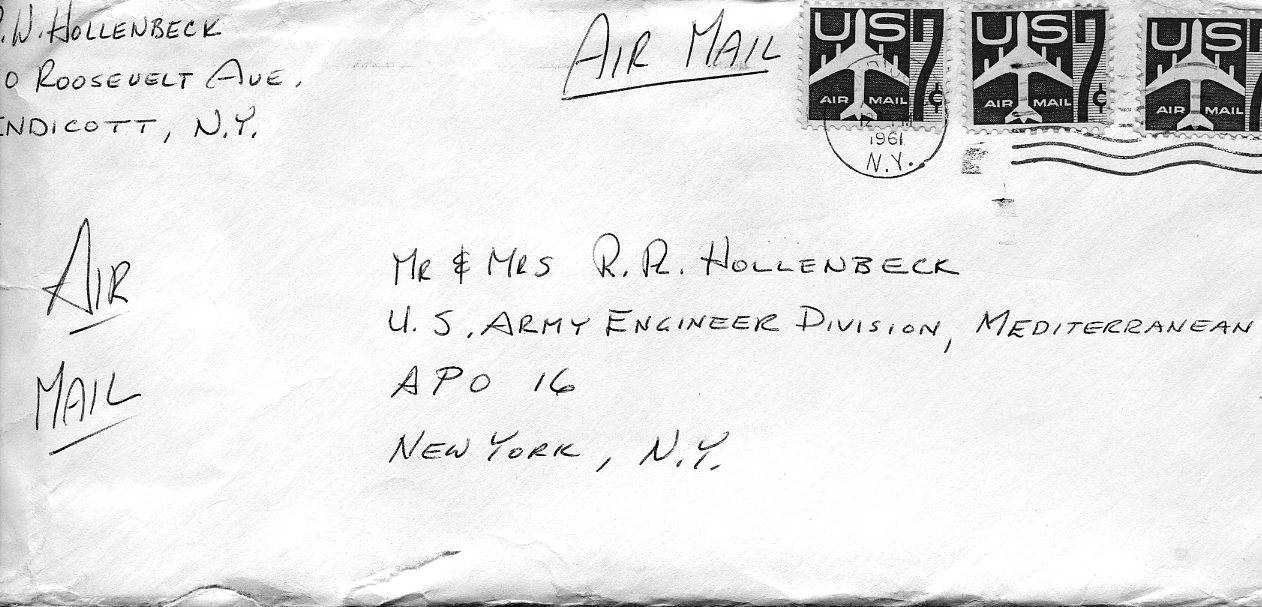 .W. HOLLENBECK
0 ROOSEVELT AVE.
ENDICOTT, N.Y.
AIR MAIL
US 7¢ AIR MAIL
US 7¢ AIR MAIL
US 7 AIR MAIL
1961
N.Y.
AIR
MAIL
MR & MRS R. R. HOLLENBECK
U.S. ARMY ENGINEER DIVISION, MEDITERRANEAN
APO 16
NEW YORK, N.Y.